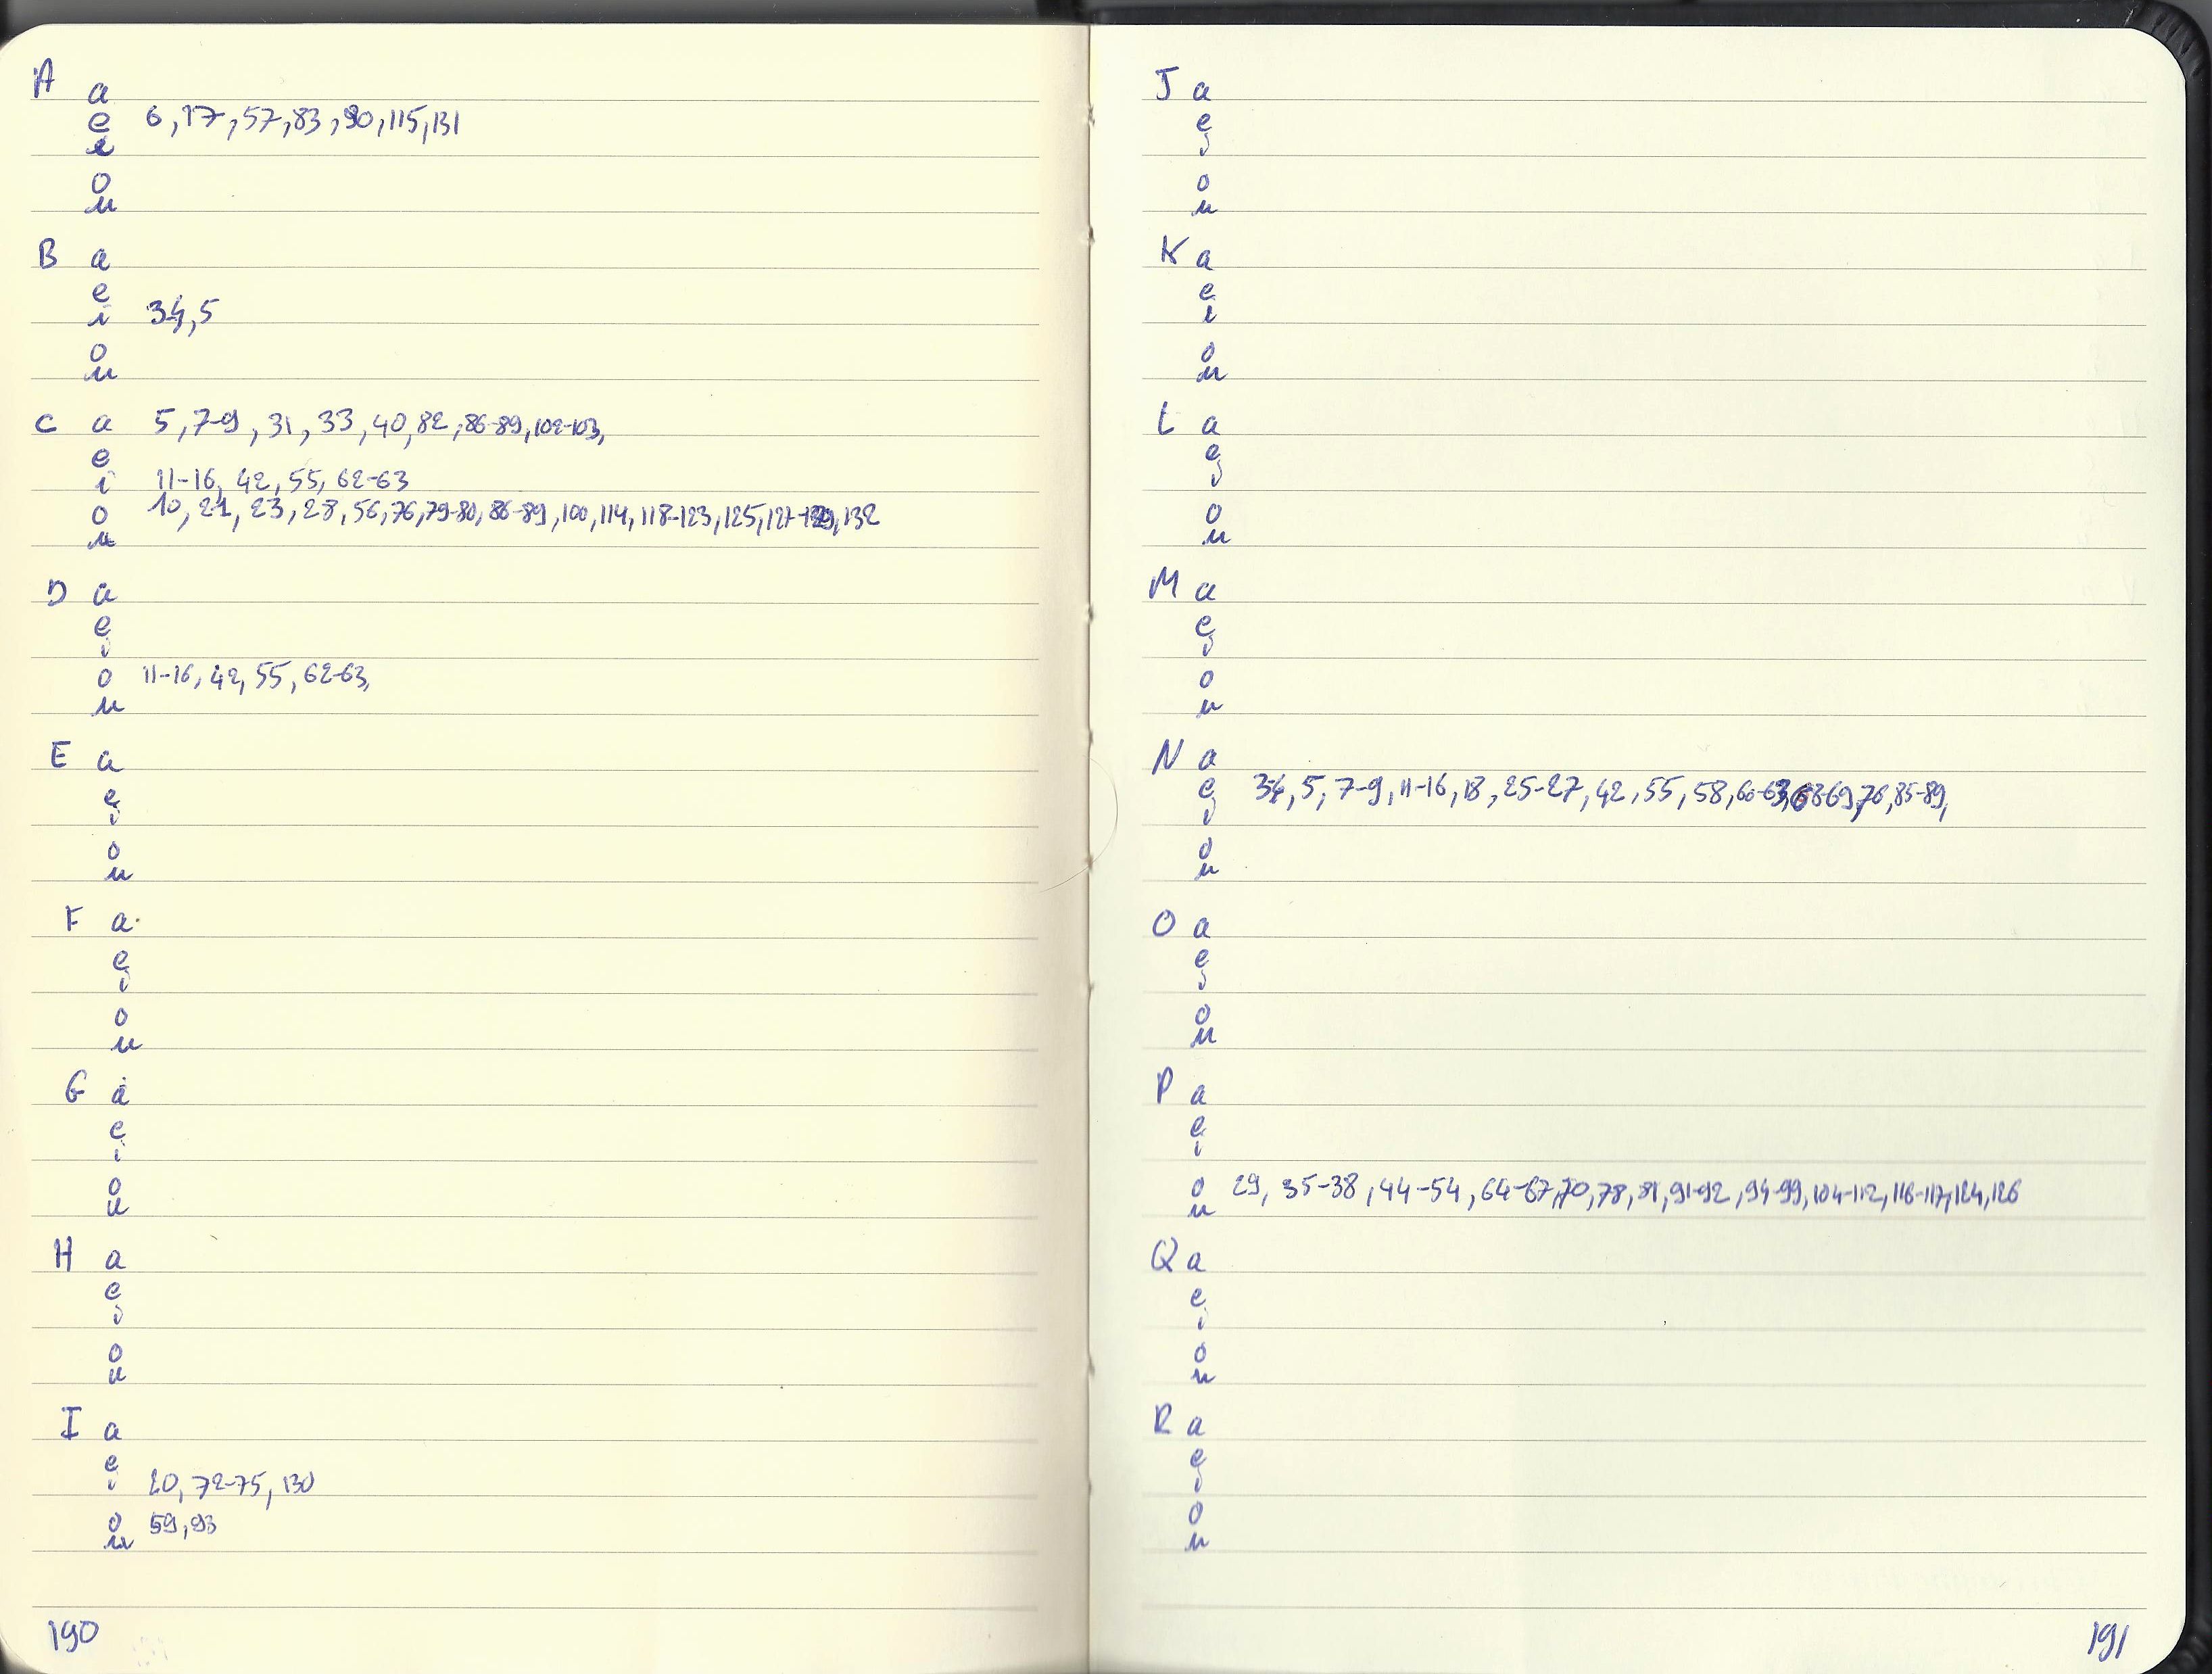 A a
e 6, 17, 57, 83, 90, 115, 131
i
o
u
B a
e
i 34, 5
o
u
C a 5, 7-9, 31, 33, 40, 82, 86-89, 102-103,
e
i 11-16, 42, 55, 62-63
o 10, 21, 23, 28, 56, 76, 79-80, 86-89, 100, 114, 118-123, 125, 127-129, 132
u
D a
e
i
o 11-16, 42, 55, 62-63,
u
E a
e
i
o
u
F a
e
i
o
u
G a
e
i
o
u
H a
e
i
o
u
I a
e
i 20, 72-75, 130
o 59, 93
u
190
J a
e
i
o
u
K a
e
i
o
u
L a
e
i
o
u
M a
e
i
o
u
N a
e 34, 5, 7-9, 11-16, 18, 25-27, 42, 55, 58, 60-63, 68-69, 76, 85-89,
i
o
u
O a
e
i
o
u
P a
e
i
o 29, 35-38, 44-54, 64-67, 70, 78, 81, 91-92, 94-99, 104-112, 116-117, 124, 126
u
Q a
e
i
o
u
R a
e
i
o
u
191